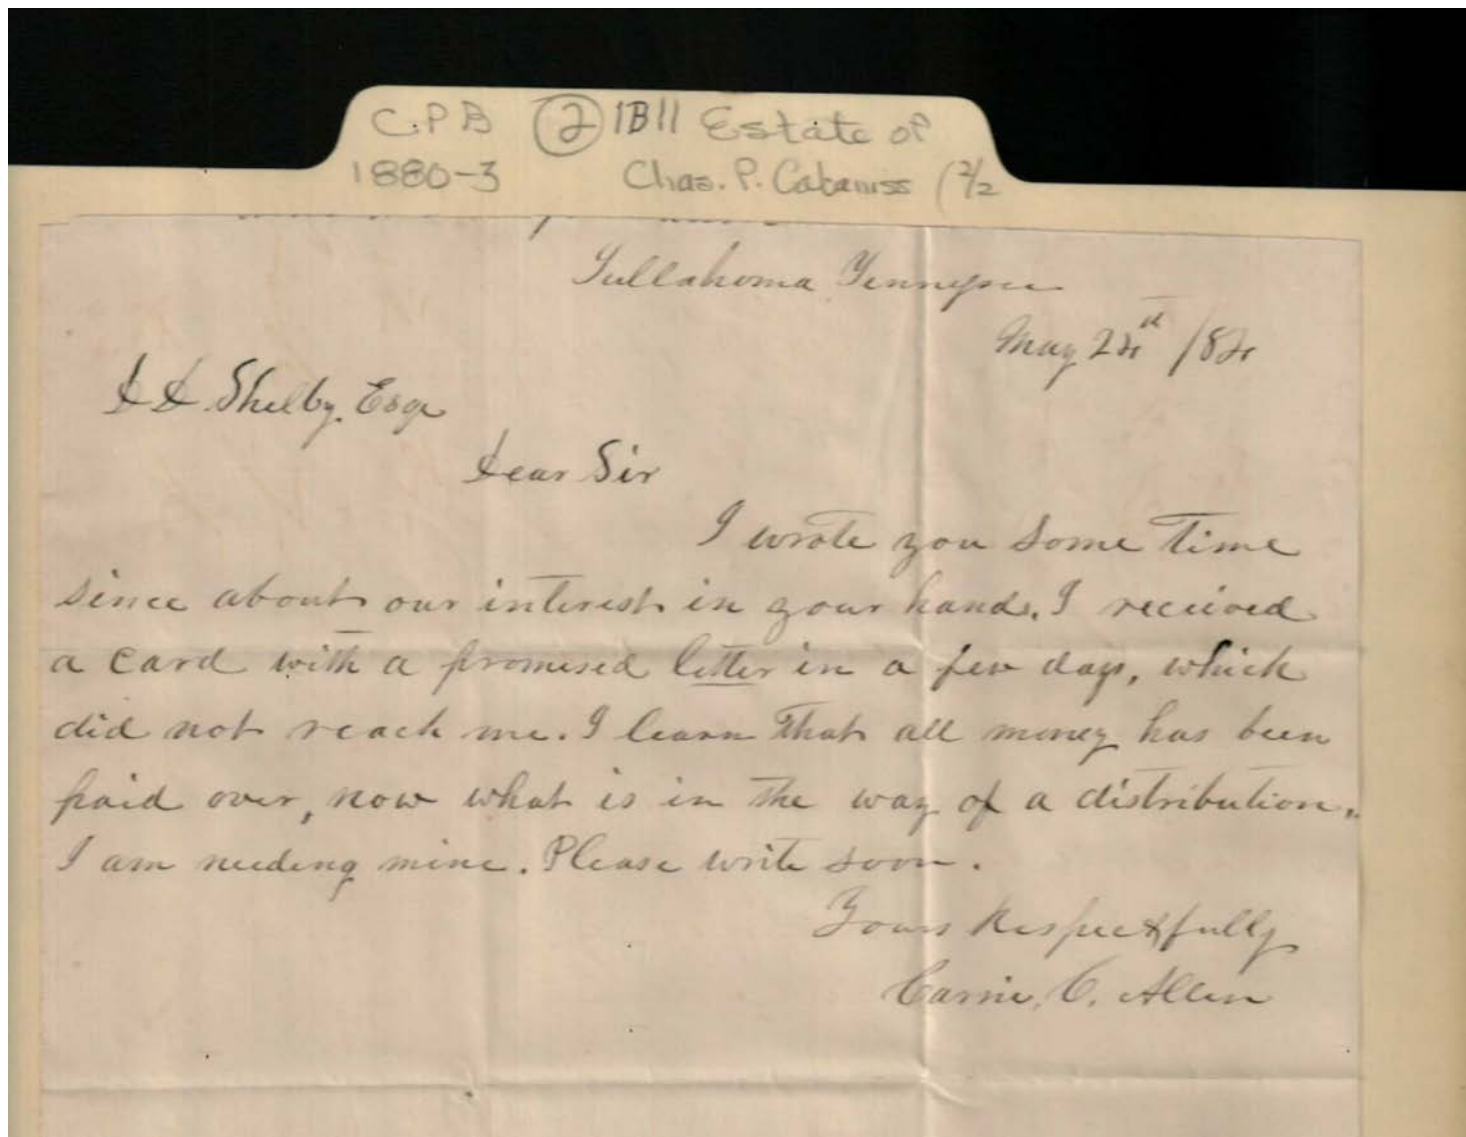 C.P.B ② 1B11 Estate of
1880-3 Chas. P. Cabaniss (2/2
Tullahoma Tennessee
May 22nd /82
D D Shelby, Esqr
Dear Sir
I wrote you some time
since about our interest in your hands. I received
a card with a promised letter in a few days, which
did not reach me. I learn that all money has been
paid over, now what is in the way of a distribution.
I am needing mine. Please write soon.
Yours Respectfully
Carrie, C. Allen